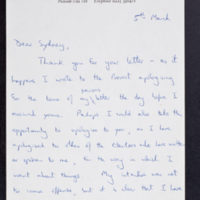 5th March
Dear Sydney,
Thank you for your letter - as it
happens I wrote to the Provost apologising
for the tone of my previous letter the day before I
received yours. Perhaps I could also take the
opportunity to apologise to you, as I have
apologised to other of the Electors who have written
or spoken to me, for the way in which I
went about things. My intention was not
to cause offence, but it is clear that I have